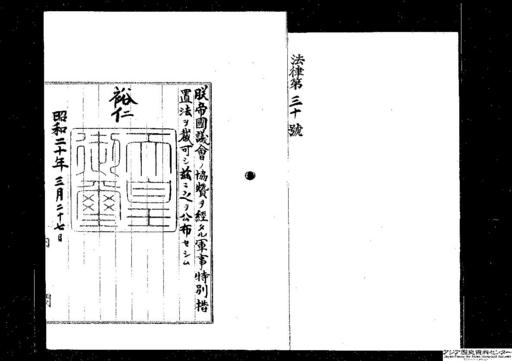 法律第三十號
朕帝國議會ノ協贊ヲ經タル軍事特別措
置法ヲ裁可シ茲ニ之ヲ公布セシム
裕仁
天皇
御璽
昭和二十年三月二十七日
内閣
アジア歴史資料センター